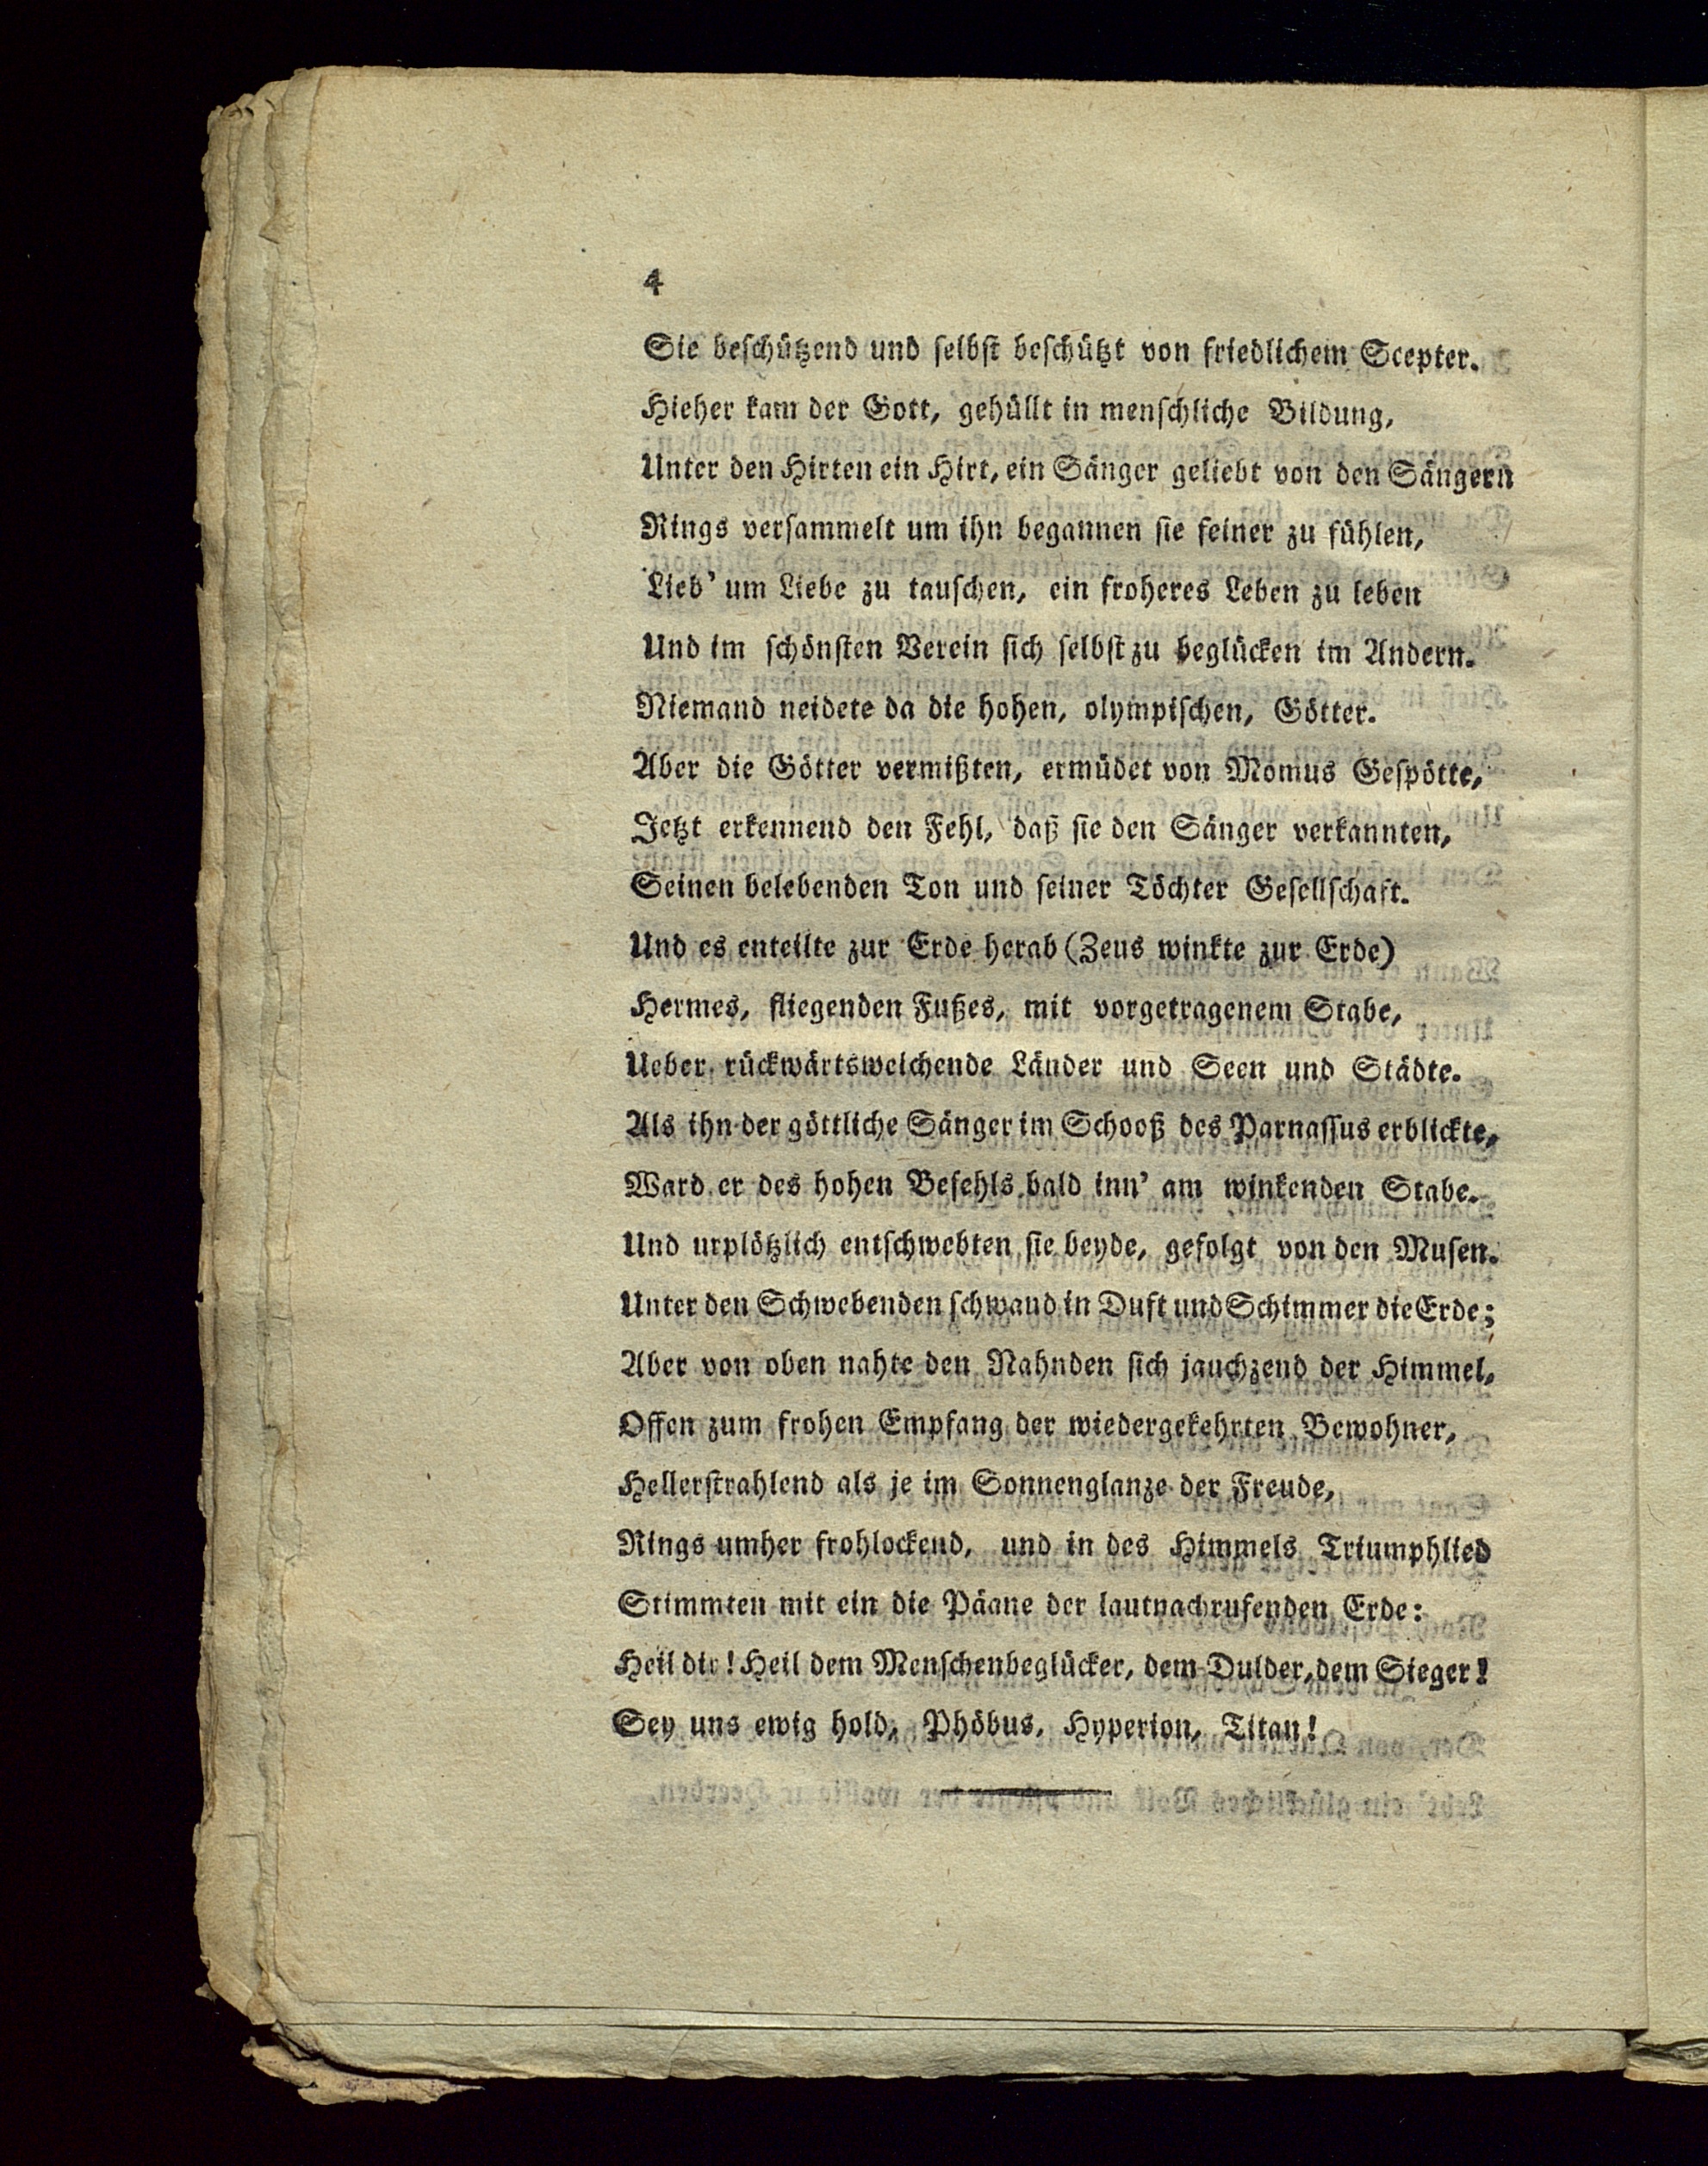 4
Sie beschützend und selbst beschützt von friedlichem Scepter.
Hieher kam der Gott, gehüllt in menschliche Bildung,
Unter den Hirten ein Hirt, ein Sänger geliebt von den Sängern
Rings versammelt um ihn begannen sie feiner zu fühlen,
Lieb' um Liebe zu tauschen, ein froheres Leben zu leben
Und im schönsten Verein sich selbst zu beglücken im Andern.
Niemand neidete da die hohen, olympischen, Götter.
Aber die Götter vermißten, ermüdet von Momus Gespötte,
Jetzt erkennend den Fehl, daß sie den Sänger verkannten,
Seinen belebenden Ton und seiner Töchter Gesellschaft.
Und es enteilte zur Erde herab (Zeus winkte zur Erde)
Hermes, fliegenden Fußes, mit vorgetragenem Stabe,
Ueber rückwärtsweichende Länder und Seen und Städte.
Als ihn der göttliche Sänger im Schooß des Parnassus erblickte,
Ward er des hohen Befehls bald inn' am winkenden Stabe.
Und urplötzlich entschwebten sie beyde, gefolgt von den Musen.
Unter den Schwebenden schwand in Duft und Schimmer die Erde;
Aber von oben nahte den Nahnden sich jauchzend der Himmel,
Offen zum frohen Empfang der wiedergekehrten Bewohner,
Hellerstrahlend als je im Sonnenglanze der Freude,
Rings umher frohlockend, und in des Himmels Triumphlied
Stimmten mit ein die Päane der lautnachrufenden Erde:
Heil dir! Heil dem Menschenbeglücker, dem Dulder, dem Sieger!
Sey uns ewig hold, Phöbus, Hyperion, Titan!